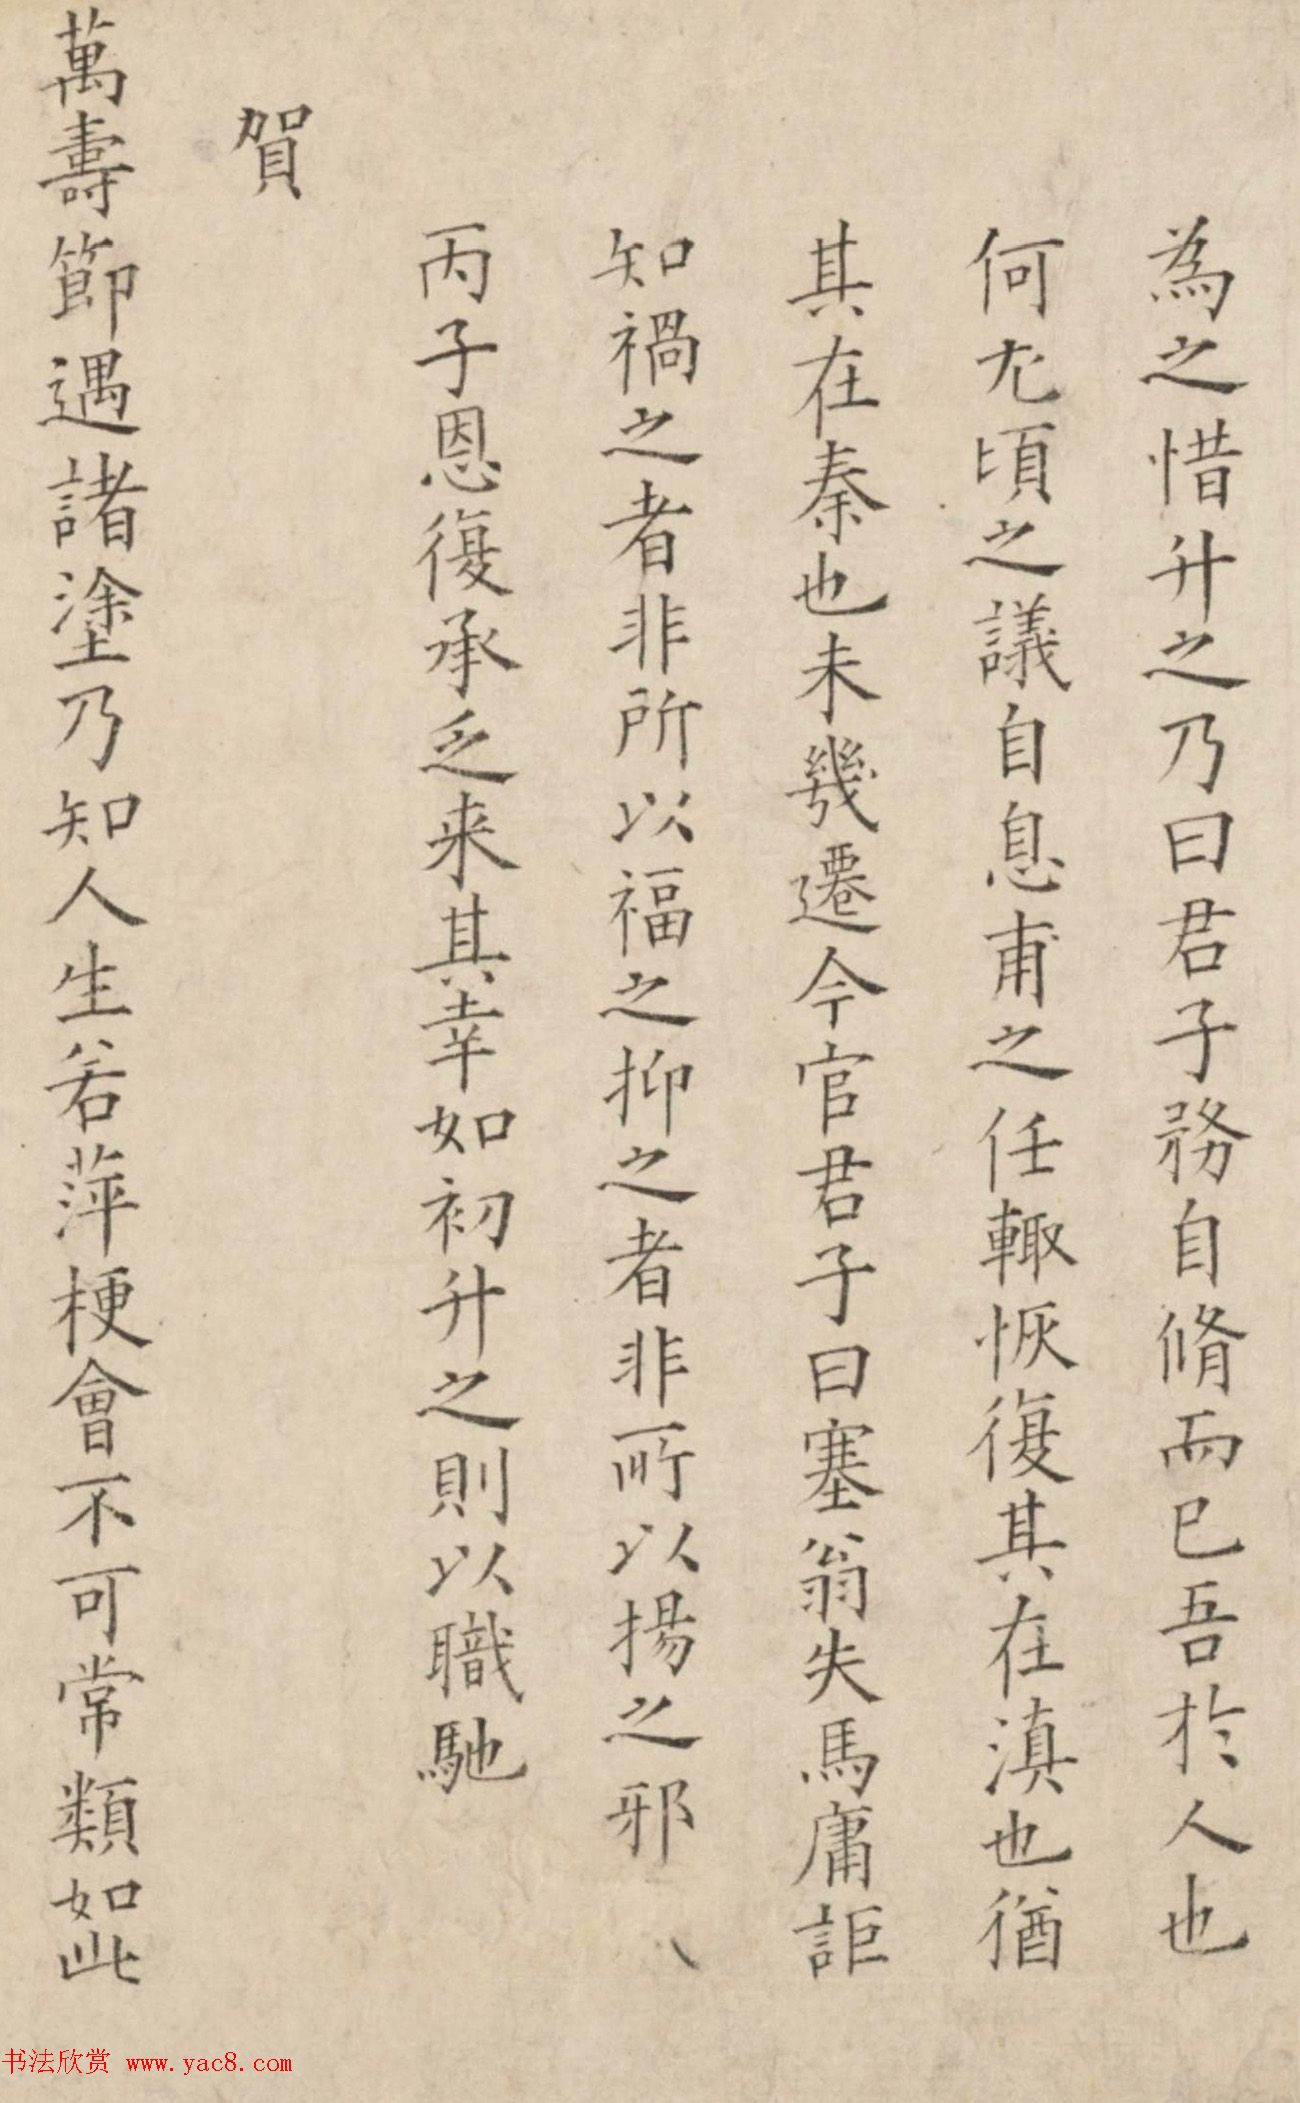 為之惜升之乃曰君子務自脩而已吾於人也
何尤頃之議自息甫之任輙恢復其在滇也猶
其在秦也未幾遷今官君子曰塞翁失馬庸詎
知禍之者非所以福之抑之者非所以揚之邪
丙子恩復承乏来其幸如初升之則以職馳
賀
萬壽節遇諸塗乃知人生若萍梗會不可常類如此
书法欣赏 www.yac8.com